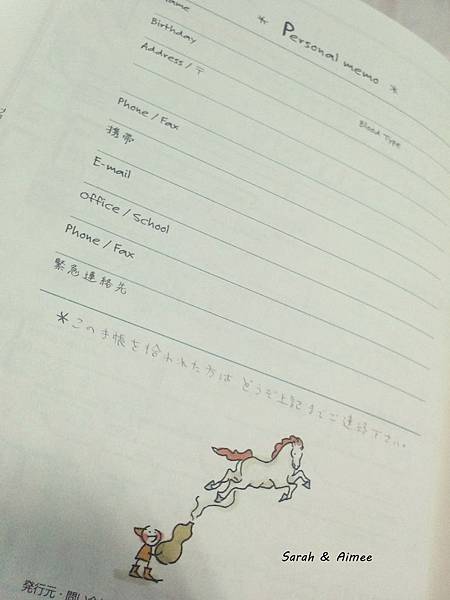 * Personal memo *
Name
Birthday
Address / 〒
Blood Type
Phone / Fax
携帯
E-mail
Office / School
Phone / Fax
緊急連絡先
*この手帳を拾われた方は どうぞ上記までご連絡下さい。
Sarah & Aimee
発行元・問い合